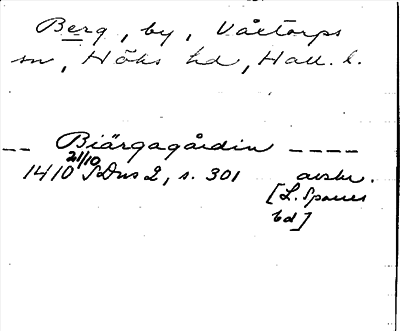 Berg, by, Våxtorps
sn, Höks hd, Hall. l.
-- Biärgagårdin ----
1410 21/10 SDns 2, s. 301 avskr.
[L. Sparres
bd]